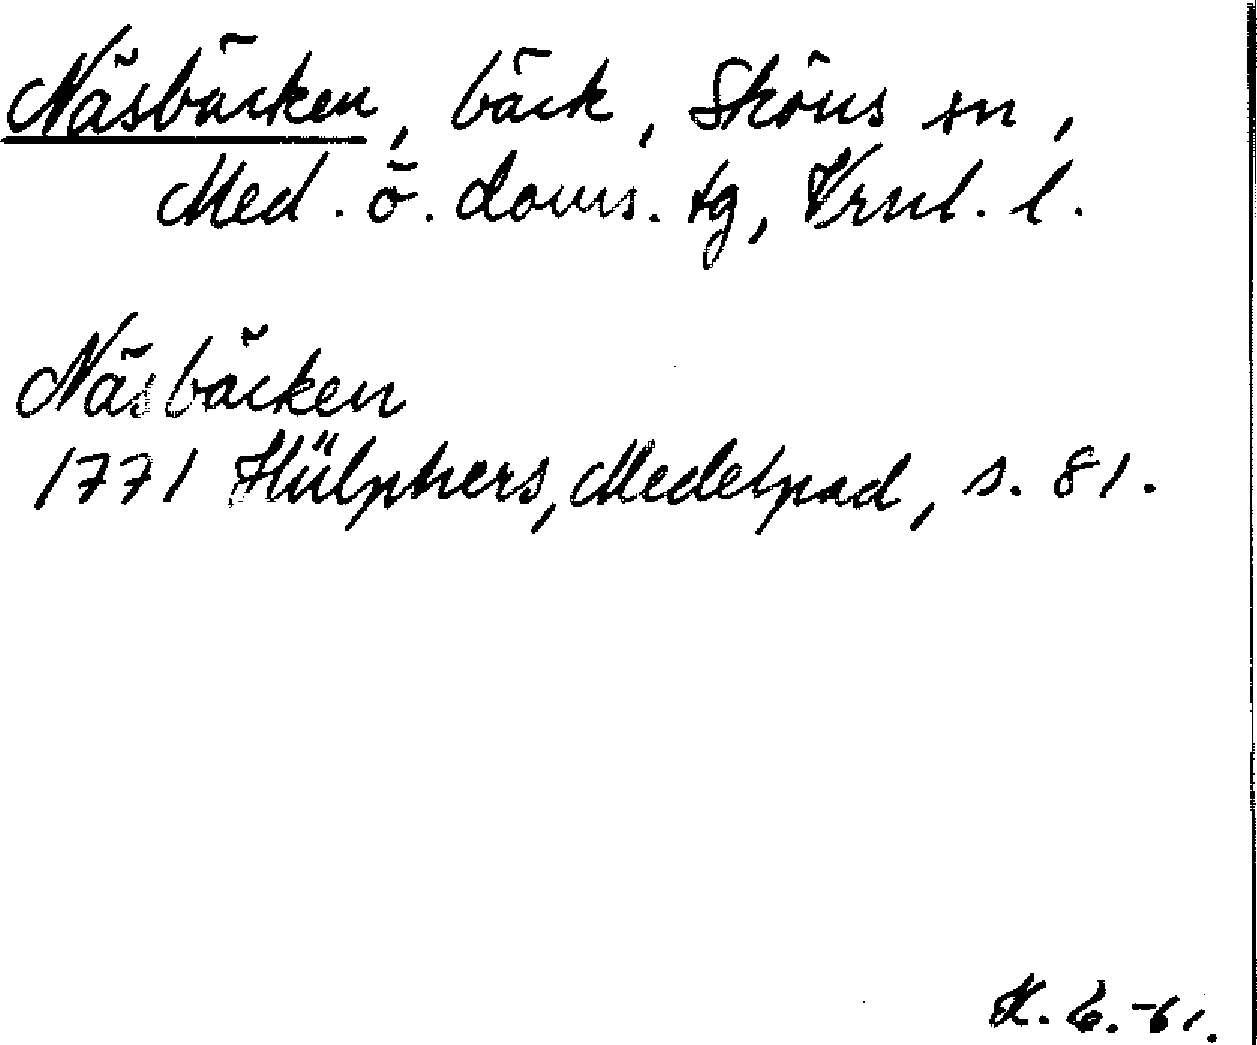 Näsbäcken, bäck, Sköns sn,
Med. ö. doms. tg, Vrnl. l.
Näsbäcken
1771 Hülphers, Medelpad, s. 81.
K. G. -61.